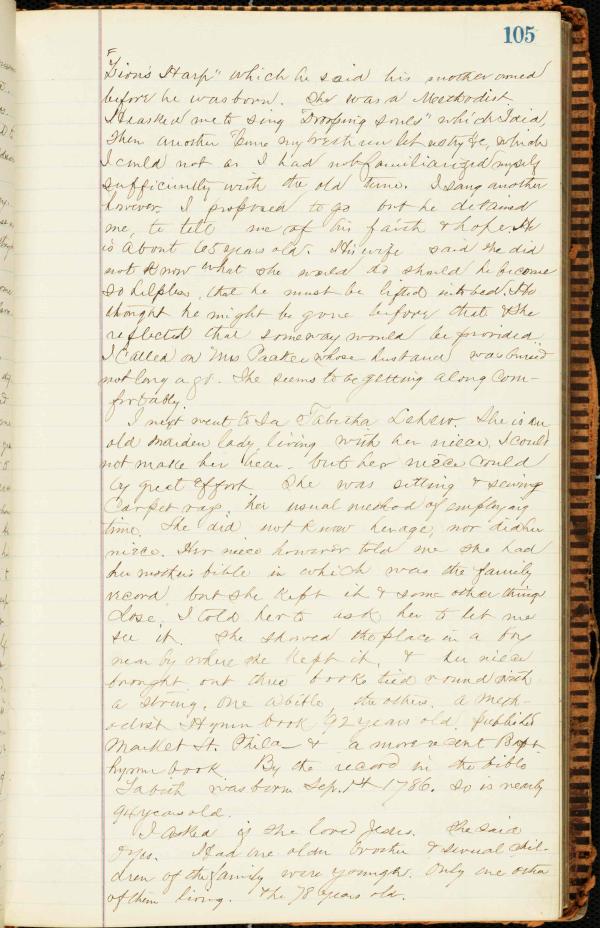 105
"Zion's Harp" which he said his mother owned
before he was born. She was a Methodist.
He asked me to sing "Drooping souls" which I did
then another "Come my &c, which
I could not as I had not familiarized myself
sufficiently with the old tune. I sang another
however. I proposed to go but he detained
me, to tell me of his faith & hope. He
is about 65 years old. His wife said she did
not know what she would do should he become
so helpless, that he must be lifted into bed. He
thought he might be gone before that & she
reflected that someway would be provided.
I called on Mrs whose husband was buried
not long ago. She seems to be getting along com-
fortably.
I next went to Tabitha She is an
old maiden lady living with her niece. I could
not make her hear but her niece could
by great effort. She was sitting & sewing
Carpet rags, her usual method of employing
time. She did not know her age, nor did her
niece. Her niece however told me she had
her mother's bible in which was the family
record but she kept it & some other things
close. I told her to ask her to let me
see it. She showed the place in a box
near by where she kept it, & her niece
brought out three books tied round with
a string. One a bible, the others, a Meth-
odist Hymn book 92 years old, published
Market St. Phila & a more recent Bapt.
hymn book. By the record in the bible
Tabith was born Sep. 1st 1786. So is nearly
94 years old.
I asked if she loved Jesus. She said
O yes. Had one older brother & several chil-
dren of the family were younger. Only one other
of them living. the 78 years old.